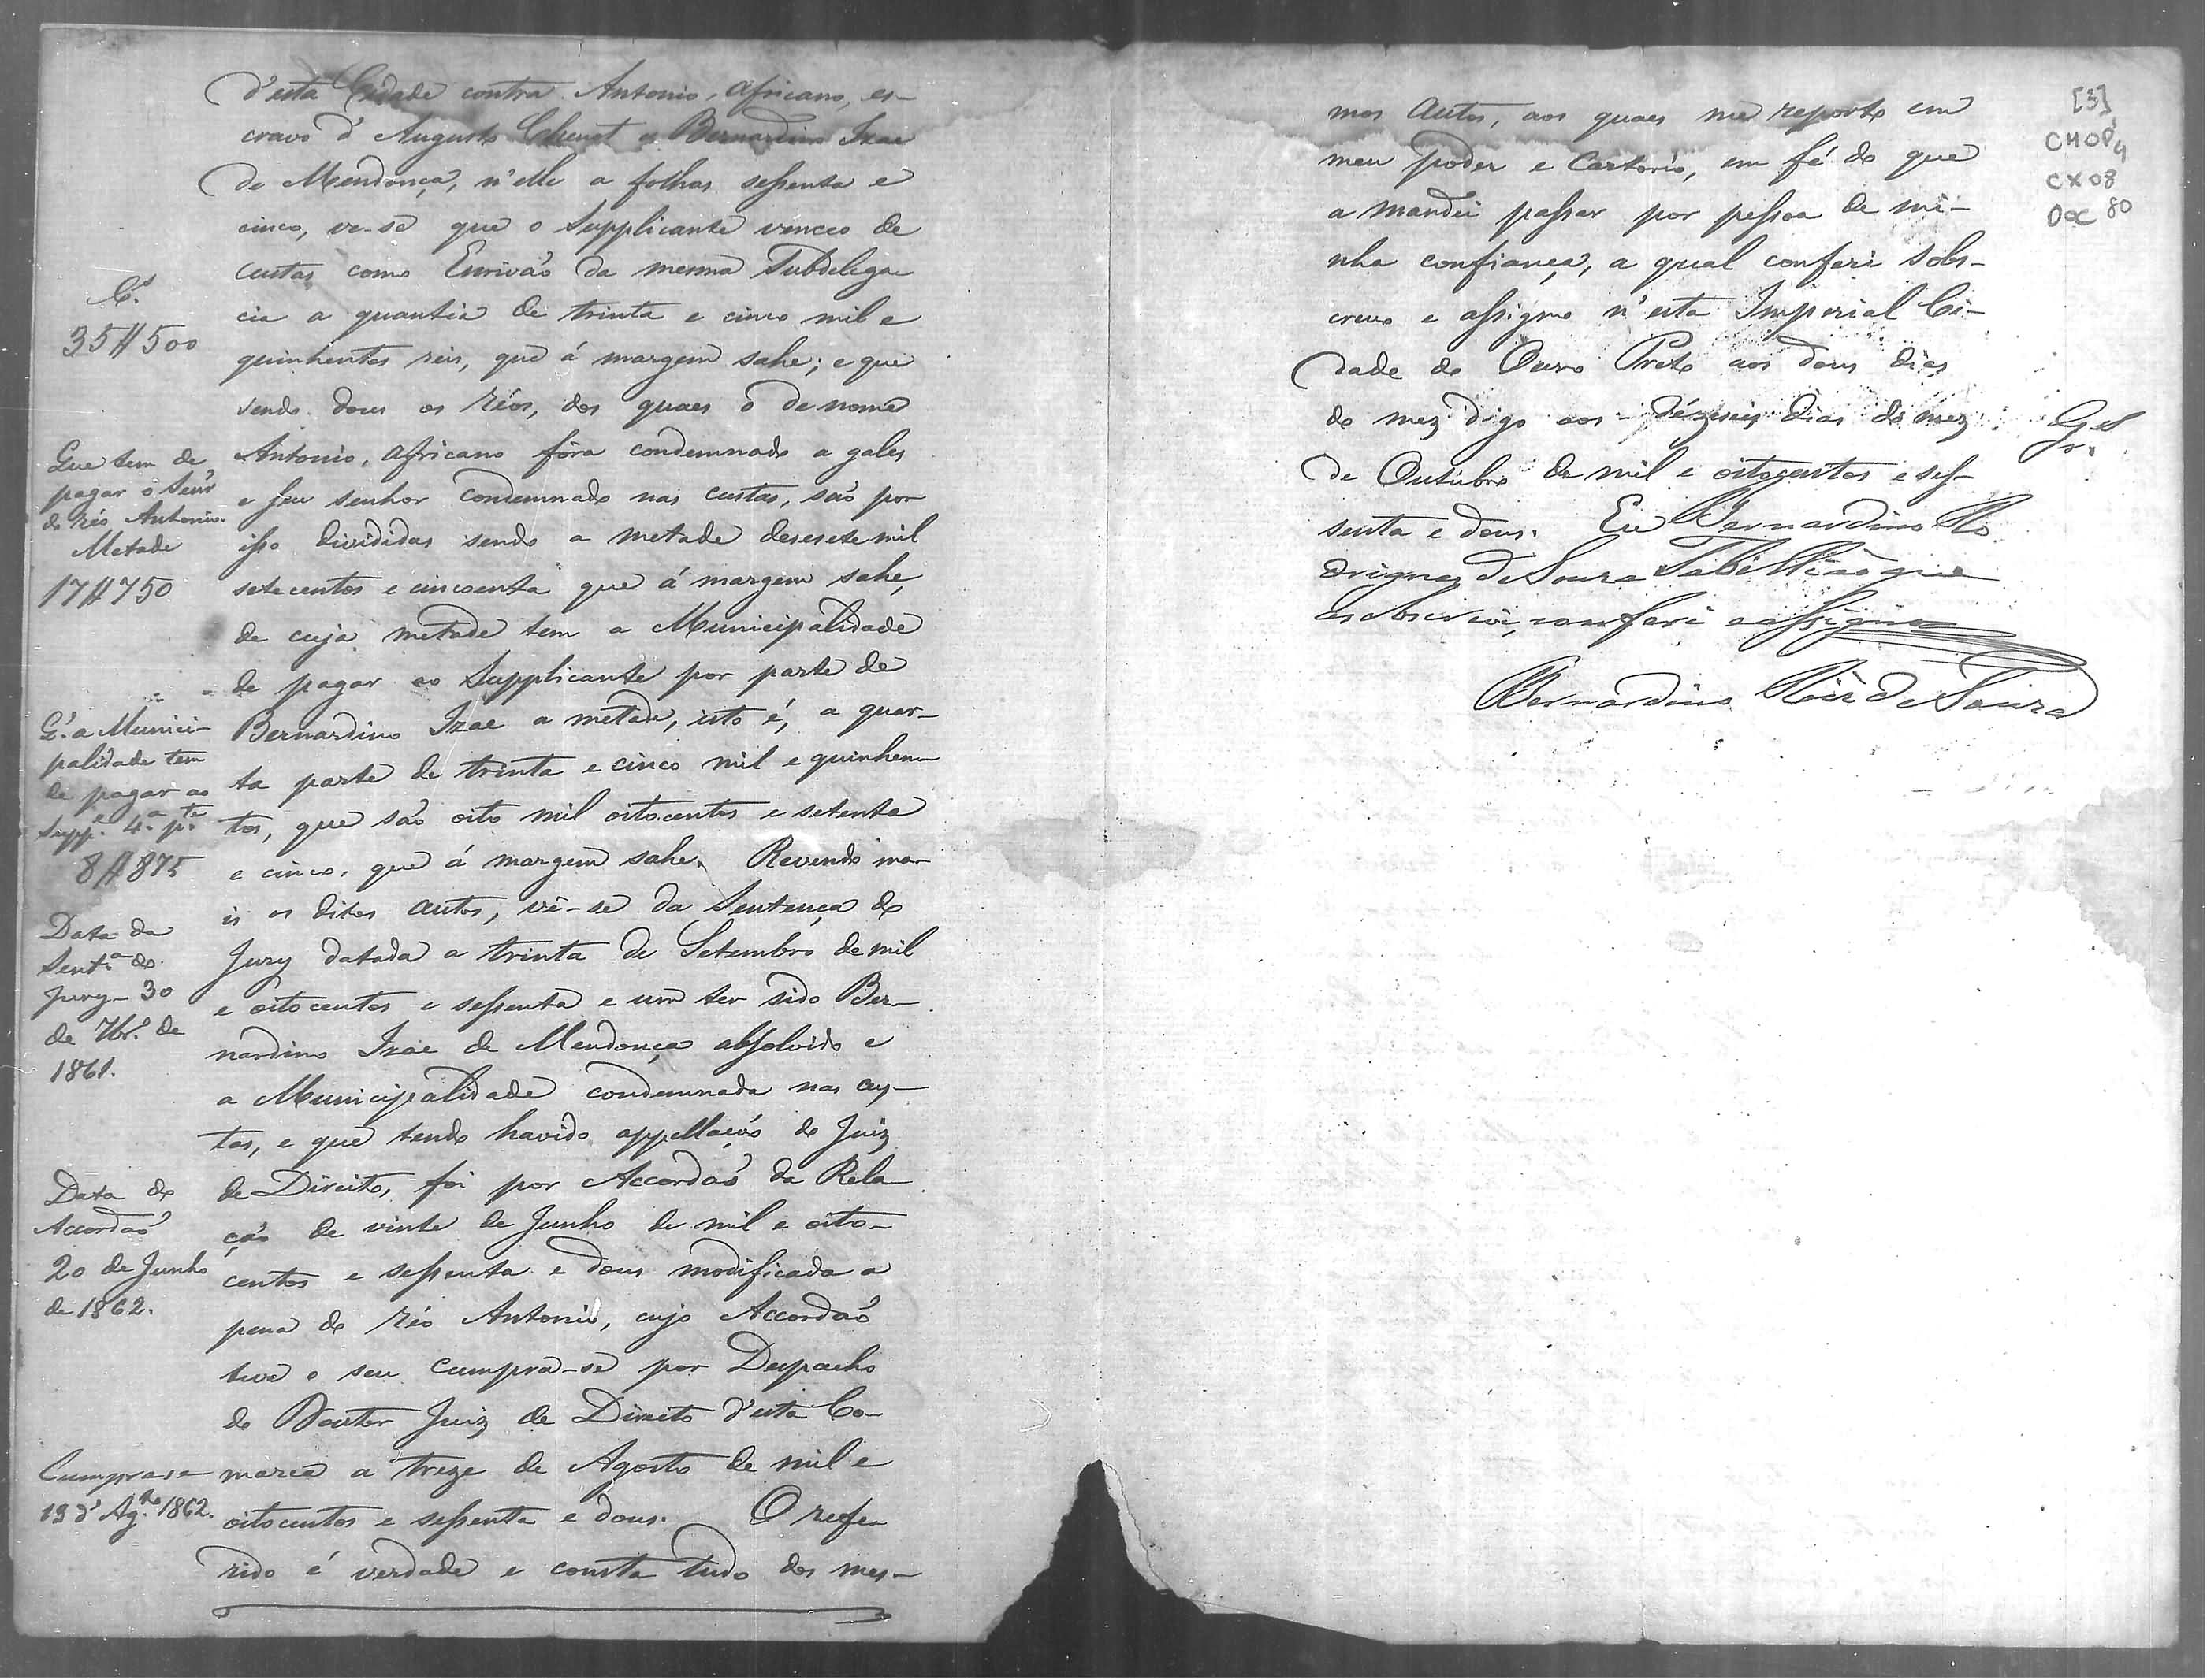 d'esta Cidade contra Antonio, africano, es-
cravo d' Augusto e Bernardino Izae
de Mendonça, n'elle a folhas sessenta e
cinco, ve-se que o Supplicante venceo de
custas como Escrivão da mesma Subdelega-
cia a quantia de trinta e cinco mil e
quinhentos reis, que á margem sahe; e que
sendo dous os réos, dos quaes o de nome
Antonio, africano fôra condemnado a gales
e seu senhor condemnado nas custas, são por
isso divididas sendo a metade desesete mil
setecentos e cincoenta que á margem sahe,
de cuja metade tem a Municipalidade
de pagar ao Supplicante por parte de
Bernardino Izae a metade, isto é, a quar-
ta parte de trinta e cinco mil e quinhen-
tos, que são oito mil oitocentos e setenta
e cinco, que á margem sahe. Revendo ma-
is os ditos autos, vê-se da Sentença do
Jury datada a trinta de Setembro de mil
e oitocentos e sessenta e um ter sido Ber-
nardino Izae de Mendonça absolvido e
a Municipalidade condemnada nas cus-
tas, e que tendo havido appellação do Juiz
de Direito, foi por Accordão da Rela-
ção de vinte de Junho de mil e oito-
centos e sessenta e dous modificada a
pena do réo Antonio, cujo Accordão
teve o seu cumpra-se por Despacho
do Doutor Juiz de Direito d'esta Co-
marca a treze de Agosto de mil e
oitocentos e sessenta e dous. O refe-
rido é verdade e consta tudo dos mes-
C.s
35$500
Que tem de
pagar o Senr
do réo Antonio.
Metade
17$750
Q. a Munici-
palidade tem
de pagar ao
Supp.e 4.a p.te
8$875
Data da
Sent.a do
Jury - 30
de 7br.o de
1861.
Data do
Accordão
20 de Junho
de 1862.
Cumpra-se
13 d' Ag.to 1862.
mos autos, aos quaes me reporto em
meu poder e Cartorio, em fé do que
a mandei passar por pessoa de mi-
nha confiança, a qual conferi sobs-
crevo e assigno n'esta Imperial Ci-
dade do Ouro Preto aos dous dias
do mez digo aos dézeseis dias do mez
de Outubro de mil e oitocentos e ses-
senta e dous. Eu Bernardino Ro
drigues de Souza Tabellião que
as sobscrevi, conferi e assigno
Bernardino Roiz de Souza
[3]
CMOP
CX 08
DOC 80